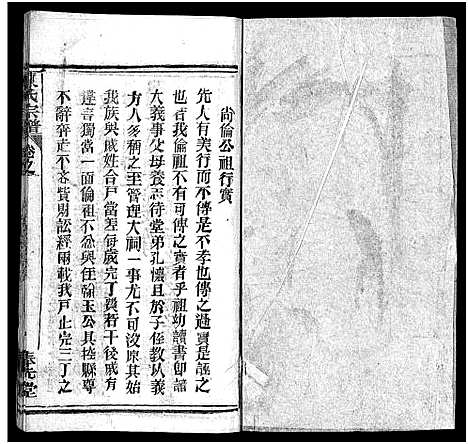 尚倫公祖行實
先人有美行而不傳是不孝也傳之過實是誣之
也若我倫祖不可傳之實者乎祖幼讀書即諳
大義事父母養志待堂弟孔懷且於子侄教以義
方人多稱之至管理大祠一事尤不可沒原其始
我族與戚姓合戶當差每歲完丁糧若干後戚有
違言獨當一面倫祖不忿與任翰玉公具控縣尊
不辭奔走不吝貲財訟經兩載我戶止完三丁之
氏宗譜
奉先堂